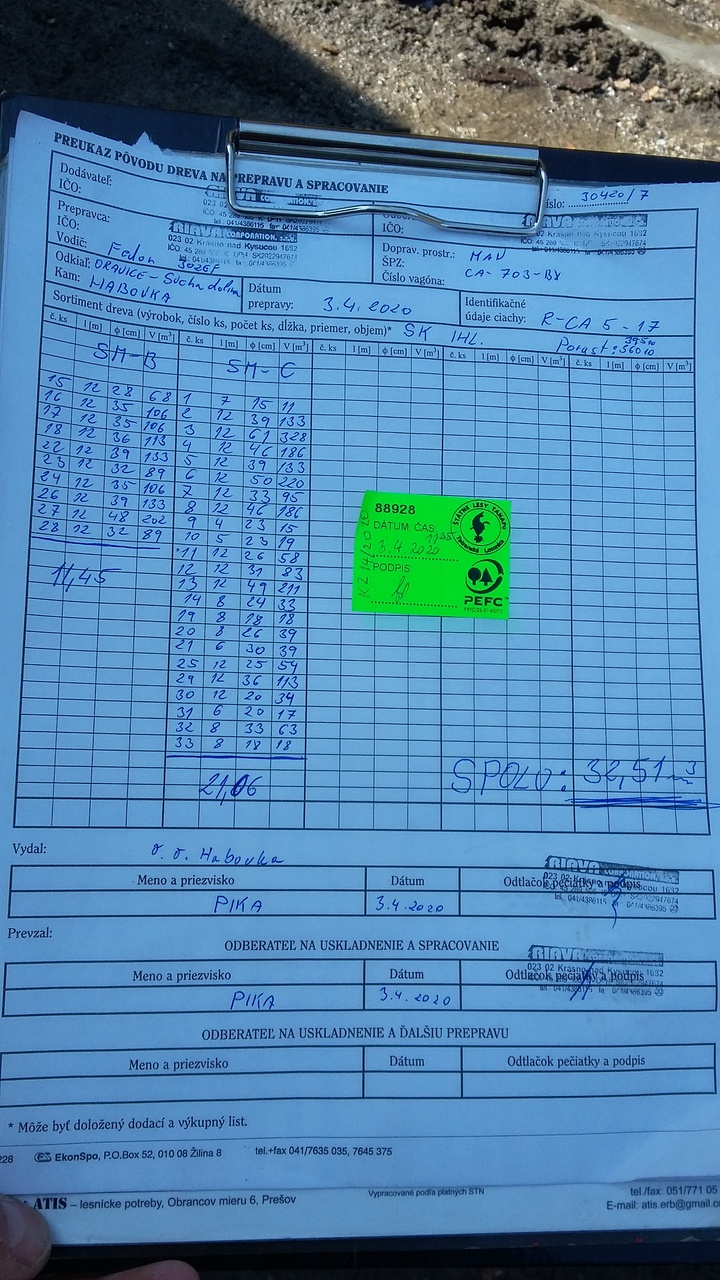 PREUKAZ PÔVODU DREVA NA PREPRAVU A SPRACOVANIE
Dodávateľ:
IČO:
íslo: 30420/7
Prepravca: RIAVA CORPORATION
IČO: 023 02 Krasno nad Kysucou 1632
Vodič: Fedor Jozef
Odkiaľ: ORAVICE - Sucha dolina
Kam: HABOVKA
Doprav. prostr.: MAN
ŠPZ: CA-703-BX
Číslo vagóna:
Dátum prepravy: 3.4.2020
Identifikačné údaje ciachy: R-CA 5-17
Sortiment dreva (výrobok, číslo ks, počet ks, dĺžka, priemer, objem)* SK IHL.
Porast:
č. ks l [m] ϕ [cm] V [m³] č. ks l [m] ϕ [cm] V [m³] č. ks l [m] ϕ [cm] V [m³] č. ks l [m] ϕ [cm] V [m³]
SM-B SM-C
15 12 28 68 1 7 15 11
16 12 35 106 2 12 39 133
17 12 35 106 3 12 61 328
18 12 36 113 4 12 46 186
22 12 39 133 5 12 39 133
23 12 32 89 6 12 50 220
24 12 35 106 7 12 33 95
26 12 39 133 8 12 46 186
27 12 48 202 9 4 23 15
28 12 32 89 10 5 23 19
11 12 26 58
11,45 12 12 31 83
13 12 49 211
14 8 24 33
19 8 18 18
20 8 26 39
21 6 30 39
25 12 25 54
29 12 36 113
30 12 20 34
31 6 20 17
32 8 33 63
33 8 18 18
21,06
SPOLU: 32,51 m³
88928
DÁTUM, ČAS
11 35
3.4.2020
PODPIS
ŠTÁTNE LESY TANAPU
Tatranská Lomnica
PEFC
Vydal: Habovka
Meno a priezvisko Dátum Odtlačok pečiatky a podpis
PIKA 3.4.2020
RIAVA CORPORATION
Prevzal:
ODBERATEĽ NA USKLADNENIE A SPRACOVANIE
Meno a priezvisko Dátum Odtlačok pečiatky a podpis
PIKA 3.4.2020
RIAVA CORPORATION
ODBERATEĽ NA USKLADNENIE A ĎALŠIU PREPRAVU
Meno a priezvisko Dátum Odtlačok pečiatky a podpis
* Môže byť doložený dodací a výkupný list.
228 EkonSpo, P.O.Box 52, 010 08 Žilina 8 tel.+fax 041/7635 035, 7645 375
ATIS – lesnícke potreby, Obrancov mieru 6, Prešov
Vypracované podľa platných STN
tel./fax: 051/771 05
E-mail: atis.erb@gmail.c